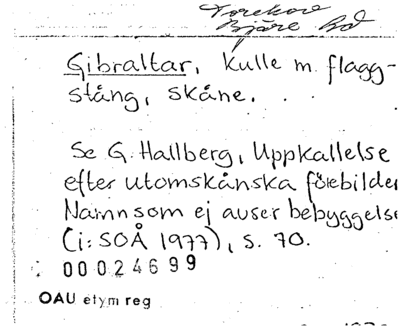 Torekov
Bjäre hd
Gibraltar, kulle m. flagg-
stång, Skåne.
Se G. Hallberg, Uppkallelse
efter utomskånska förebilder
Namn som ej avser bebyggelse
(i: SOÅ 1977), s. 70.
00024699
OAU etym reg